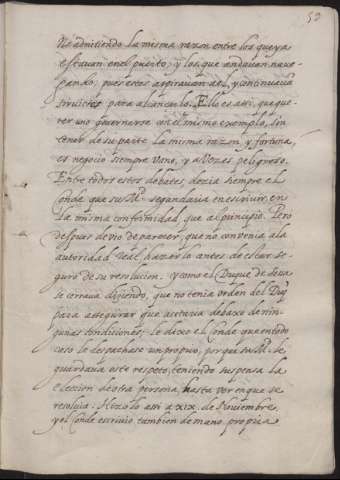 59
No admitiendo la misma razon entre los que ya
estauan en el puesto; y los que andauan naue-
gando: pues estos aspirauan a el, y continuauan
seruicios para alcançarlo. Ello es assi, que que-
rer uno gouernarse con el mismo exemplo, sin
tener de su parte la misma razon, y fortuna,
es negocio siempre vano, y a vezes peligroso.
Entre todos estos debates, dezia siempre el
Conde que su M.d segundaria en escriuir, en
la misma conformidad, que al principio. Pero
despues deuio de parecer, que no conuenia a la
autoridad Real hazerlo antes de estar se-
guro de su resolucion. y como el Duque de Sesa
se cerraua diziendo, que no tenia orden del Duq.
para assegurar que acetaria debaxo de nin-
gunas condiciones; le dixo el Conde que en todo
caso le despachase un propio, porque su M.d le
guardaua este respeto, teniendo suspensa la
eleccion de otra persona, hasta ver en que se
resoluia: Hizolo assi a xix. de Nouiembre,
y el Conde escriuio tambien de mano propia